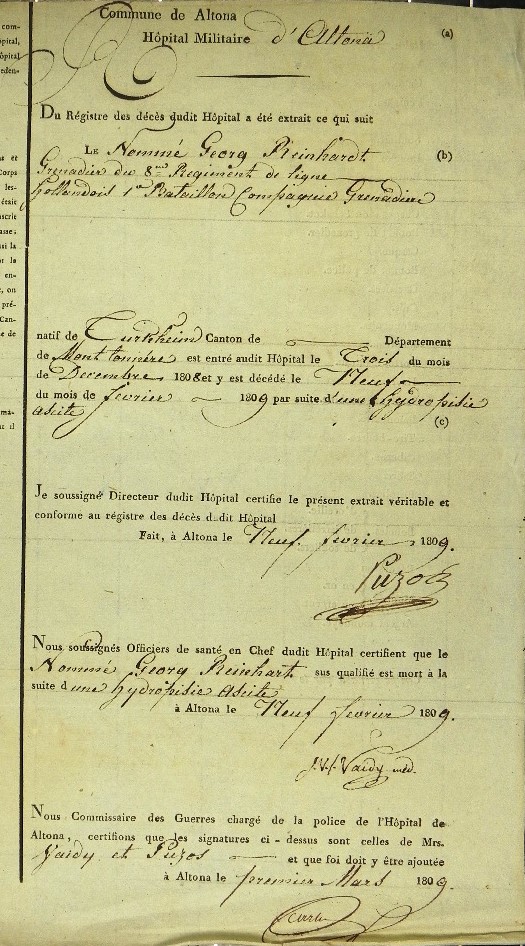 com-
pital,
ôpital
eden-
s et
Corps
les-
était
nscrit
asse;
si la
r le
en-
, on
pré-
Can-
e de
ma-
t d
Commune de Altona (a)
Hôpital Militaire d'Altona
Du Régistre des décès dudit Hôpital a été extrait ce qui suit
Le Nommé Georg Reinhardt (b)
Grenadier du 8me Regiment de ligne
hollandois 1er Bataillon Compagnie Grenadiere
natif de Turkheim Canton de — Département
de Mont tonnere est entré audit Hôpital le Trois du mois
de Decembre 1808 et y est décédé le Neuf
du mois de fevrier 1809 par suite d'une hydropisie
asite (c)
Je soussigné Directeur dudit Hôpital certifie le présent extrait véritable et
conforme au régistre des décès dudit Hôpital
Fait, à Altona le Neuf fevrier 1809.
Puzos
Nous soussignés Officiers de santé en Chef dudit Hôpital certifient que le
Nommé Georg Reinhart sus qualifié est mort à la
suite d'une hydropisie asite
à Altona le Neuf fevrier 1809.
Vaidy med.
Nous Commissaire des Guerres chargé de la police de l'Hôpital de
Altona, certifions que les signatures ci-dessus sont celles de Mrs.
Vaidy et Puzos — et que foi doit y être ajoutée
à Altona le premier Mars 1809.